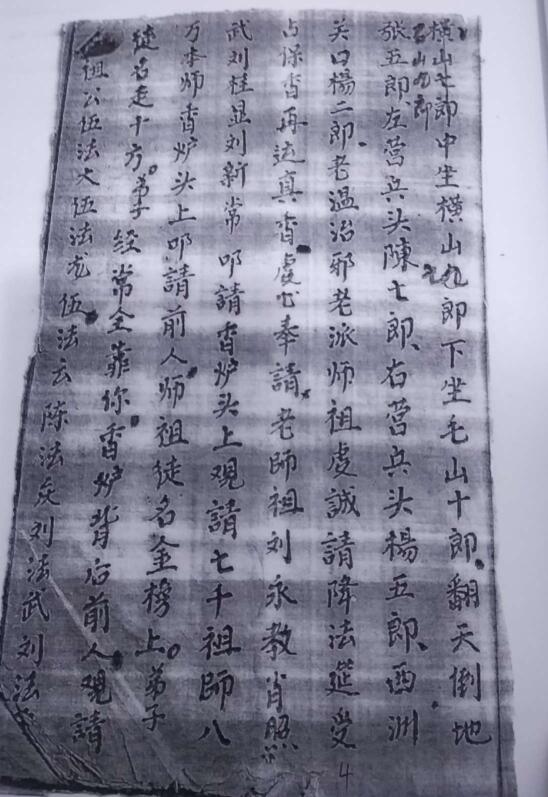 横山七郎中坐横山九郎下坐毛山十郎、翻天倒地
石山九郎
张五郎、左营兵头陳七郎、右营兵头楊五郎、西洲
关口楊二郎、老温治邪老派师祖虔誠請降法筵受
占保香再达真香虔心奉請、老師祖刘永教肖照
武刘桂显刘新常叩請香炉头上观請七千祖師八
万本师香炉头上叩請前人师祖徒名金榜上。弟子
徒名走十方。弟子经常全靠你、香炉背后前人观請
祖公伍法大伍法龙伍法云陈法灵刘法武刘法
4